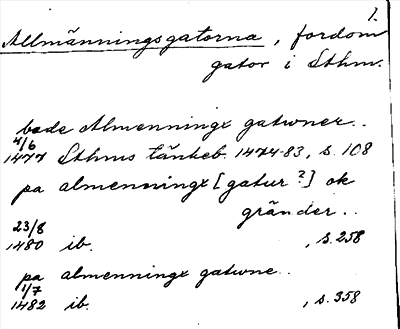 1.
Allmänningsgatorna, fordom
gator i Sthm.
bade Almenningx gatwner..
4/6
1477 Sthms tänkeb. 1474-83, s. 108
pa almenningx [gatur?] ok
gränder..
23/8
1480 ib. , s. 258
pa almenningx gatwne..
1/7
1482 ib. , s. 358